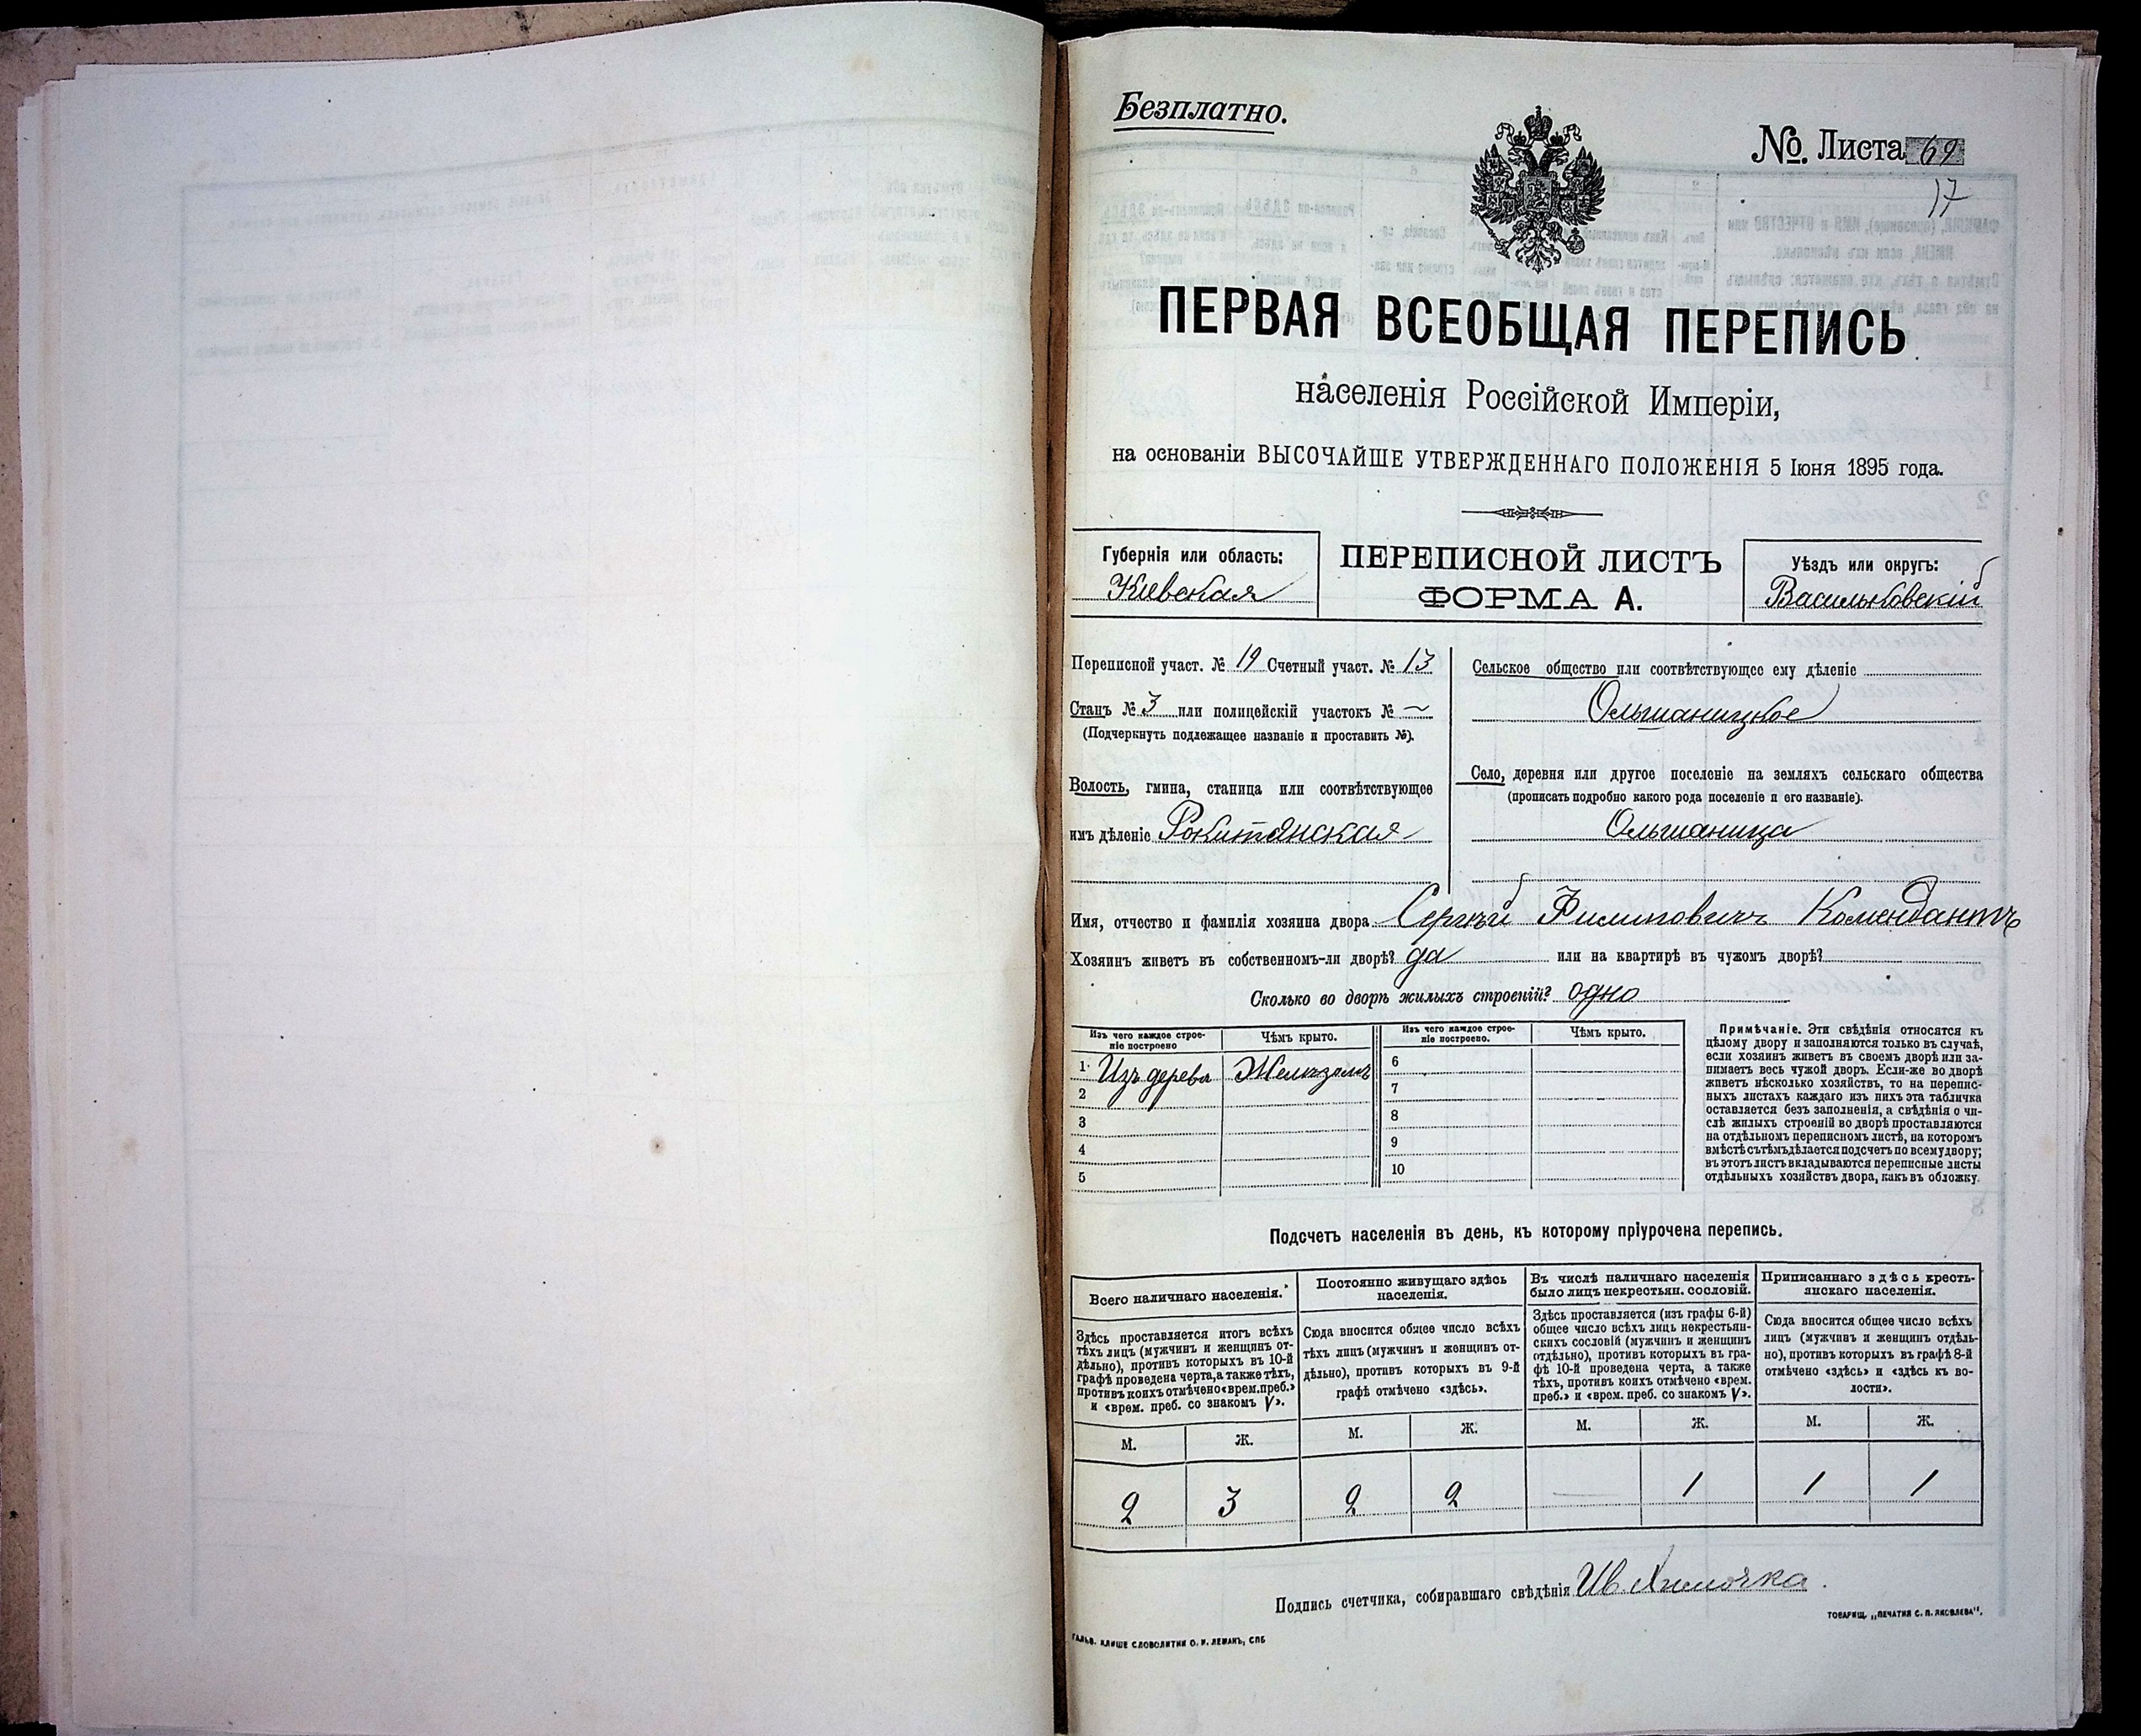 Безплатно.
№. Листа 69
17
ПЕРВАЯ ВСЕОБЩАЯ ПЕРЕПИСЬ
населенія Россійской Имперіи,
на основаніи ВЫСОЧАЙШЕ УТВЕРЖДЕННАГО ПОЛОЖЕНІЯ 5 Іюня 1895 года.
Губернія или область:
Кіевская
ПЕРЕПИСНОЙ ЛИСТЪ
ФОРМА А.
Уѣздъ или округъ:
Васильковскій
Переписной участ. № 19 Счетный участ. № 13
Станъ № 3 или полицейскій участокъ № —
(Подчеркнуть подлежащее названіе и проставить №).
Волость, гмина, станица или соотвѣтствующее
имъ дѣленіе Рокитянская
Сельское общество или соотвѣтствующее ему дѣленіе
Ольшаницкое
Село, деревня или другое поселеніе на земляхъ сельскаго общества
(прописать подробно какого рода поселеніе и его названіе).
Ольшаница
Имя, отчество и фамилія хозяина двора Сергѣй Филиповичъ Комендантъ
Хозяинъ живетъ въ собственномъ-ли дворѣ? да или на квартирѣ въ чужомъ дворѣ?
Сколько во дворѣ жилыхъ строеній? одно
Изъ чего каждое строе-
ніе построено
Чѣмъ крыто.
Изъ чего каждое строе-
ніе построено.
Чѣмъ крыто.
1 Изъ дерева Желѣзомъ 6
2 7
3 8
4 9
5 10
Примѣчаніе. Эти свѣдѣнія относятся къ
цѣлому двору и заполняются только въ случаѣ,
если хозяинъ живетъ въ своемъ дворѣ или за-
нимаетъ весь чужой дворъ. Если-же во дворѣ
живетъ нѣсколько хозяйствъ, то на перепис-
ныхъ листахъ каждаго изъ нихъ эта табличка
оставляется безъ заполненія, а свѣдѣнія о чи-
слѣ жилыхъ строеній во дворѣ проставляются
на отдѣльномъ переписномъ листѣ, на которомъ
вмѣстѣ съ тѣмъ дѣлается подсчетъ по всему двору;
въ этотъ листъ вкладываются переписные листы
отдѣльныхъ хозяйствъ двора, какъ въ обложку.
Подсчетъ населенія въ день, къ которому пріурочена перепись.
Всего наличнаго населенія.
Здѣсь проставляется итогъ всѣхъ
тѣхъ лицъ (мужчинъ и женщинъ от-
дѣльно), противъ которыхъ въ 10-й
графѣ проведена черта, а также тѣхъ,
противъ коихъ отмѣчено «врем. преб.»
и «врем. преб. со знакомъ V».
Постоянно живущаго здѣсь
населенія.
Сюда вносится общее число всѣхъ
тѣхъ лицъ (мужчинъ и женщинъ от-
дѣльно), противъ которыхъ въ 9-й
графѣ отмѣчено «здѣсь».
Въ числѣ наличнаго населенія
было лицъ некрестьян. сословій.
Здѣсь проставляется (изъ графы 6-й)
общее число всѣхъ лицъ некрестьян-
скихъ сословій (мужчинъ и женщинъ
отдѣльно), противъ которыхъ въ гра-
фѣ 10-й проведена черта, а также
тѣхъ, противъ коихъ отмѣчено «врем.
преб.» и «врем. преб. со знакомъ V».
Приписаннаго здѣсь кресть-
янскаго населенія.
Сюда вносится общее число всѣхъ
лицъ (мужчинъ и женщинъ отдѣль-
но), противъ которыхъ въ графѣ 8-й
отмѣчено «здѣсь» и «здѣсь къ во-
лости».
М. Ж. М. Ж. М. Ж. М. Ж.
2 3 2 2 — 1 1 1
Подпись счетчика, собиравшаго свѣдѣнія Ив.
ТОВАРИЩ. „ПЕЧАТНЯ С. П. ЯКОВЛЕВА“.
ГАЛЬВ. КЛИШЕ СЛОВОЛИТНИ О. И. ЛЕМАНЪ, СПБ